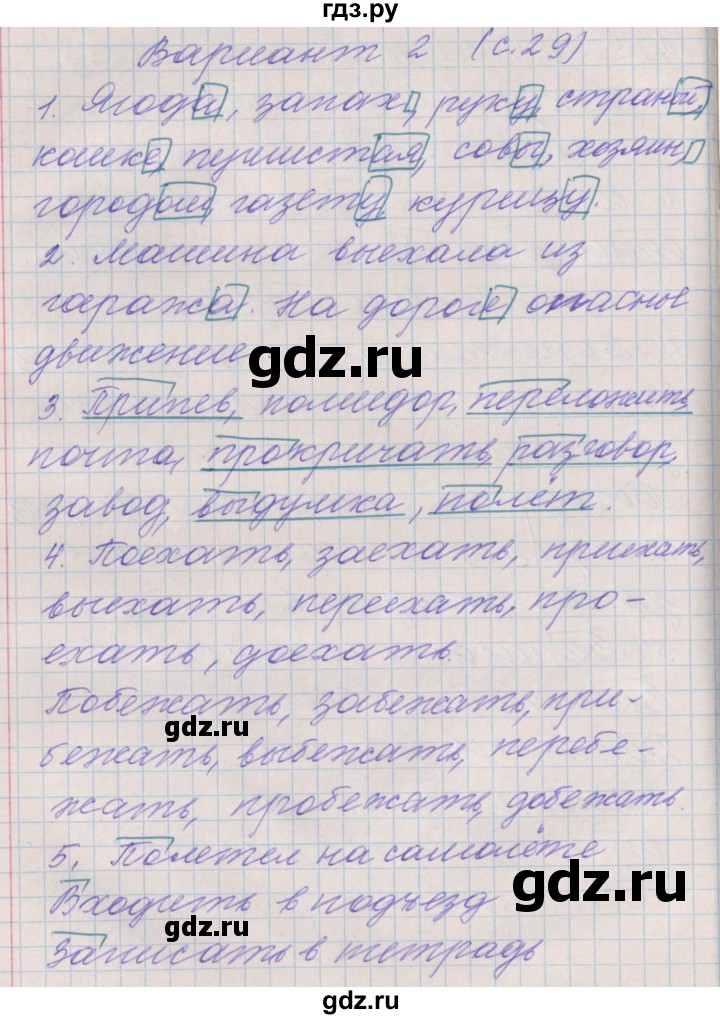 гдз.ру
Вариант 2 (с.29)
1. Ягода, запах, руку, страной,
кошке, пушистая, совы, хозяин,
городом, газету, курицу.
2. Машина выехала из
гаража. На дороге опасное
движение.
gdz.ru
3. Припев, помидор, переложить,
почта, прокричать, разговор,
завод, выдумка, полёт.
4. Поехать, заехать, приехать,
выехать, переехать, про-
ехать, доехать.
Побежать, забежать, при-
gdz.ru
бежать, выбежать, перебе-
жать, пробежать, добежать.
5. Полетел на самолёте
Входить в подъезд
gdz.ru
Записать в тетрадь
gdz.ru